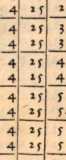 4 25 2
4 25 3
4 25 3
4 25 4
4 25 4
4 25 5
4 25 5
4 25 5
4 25 5